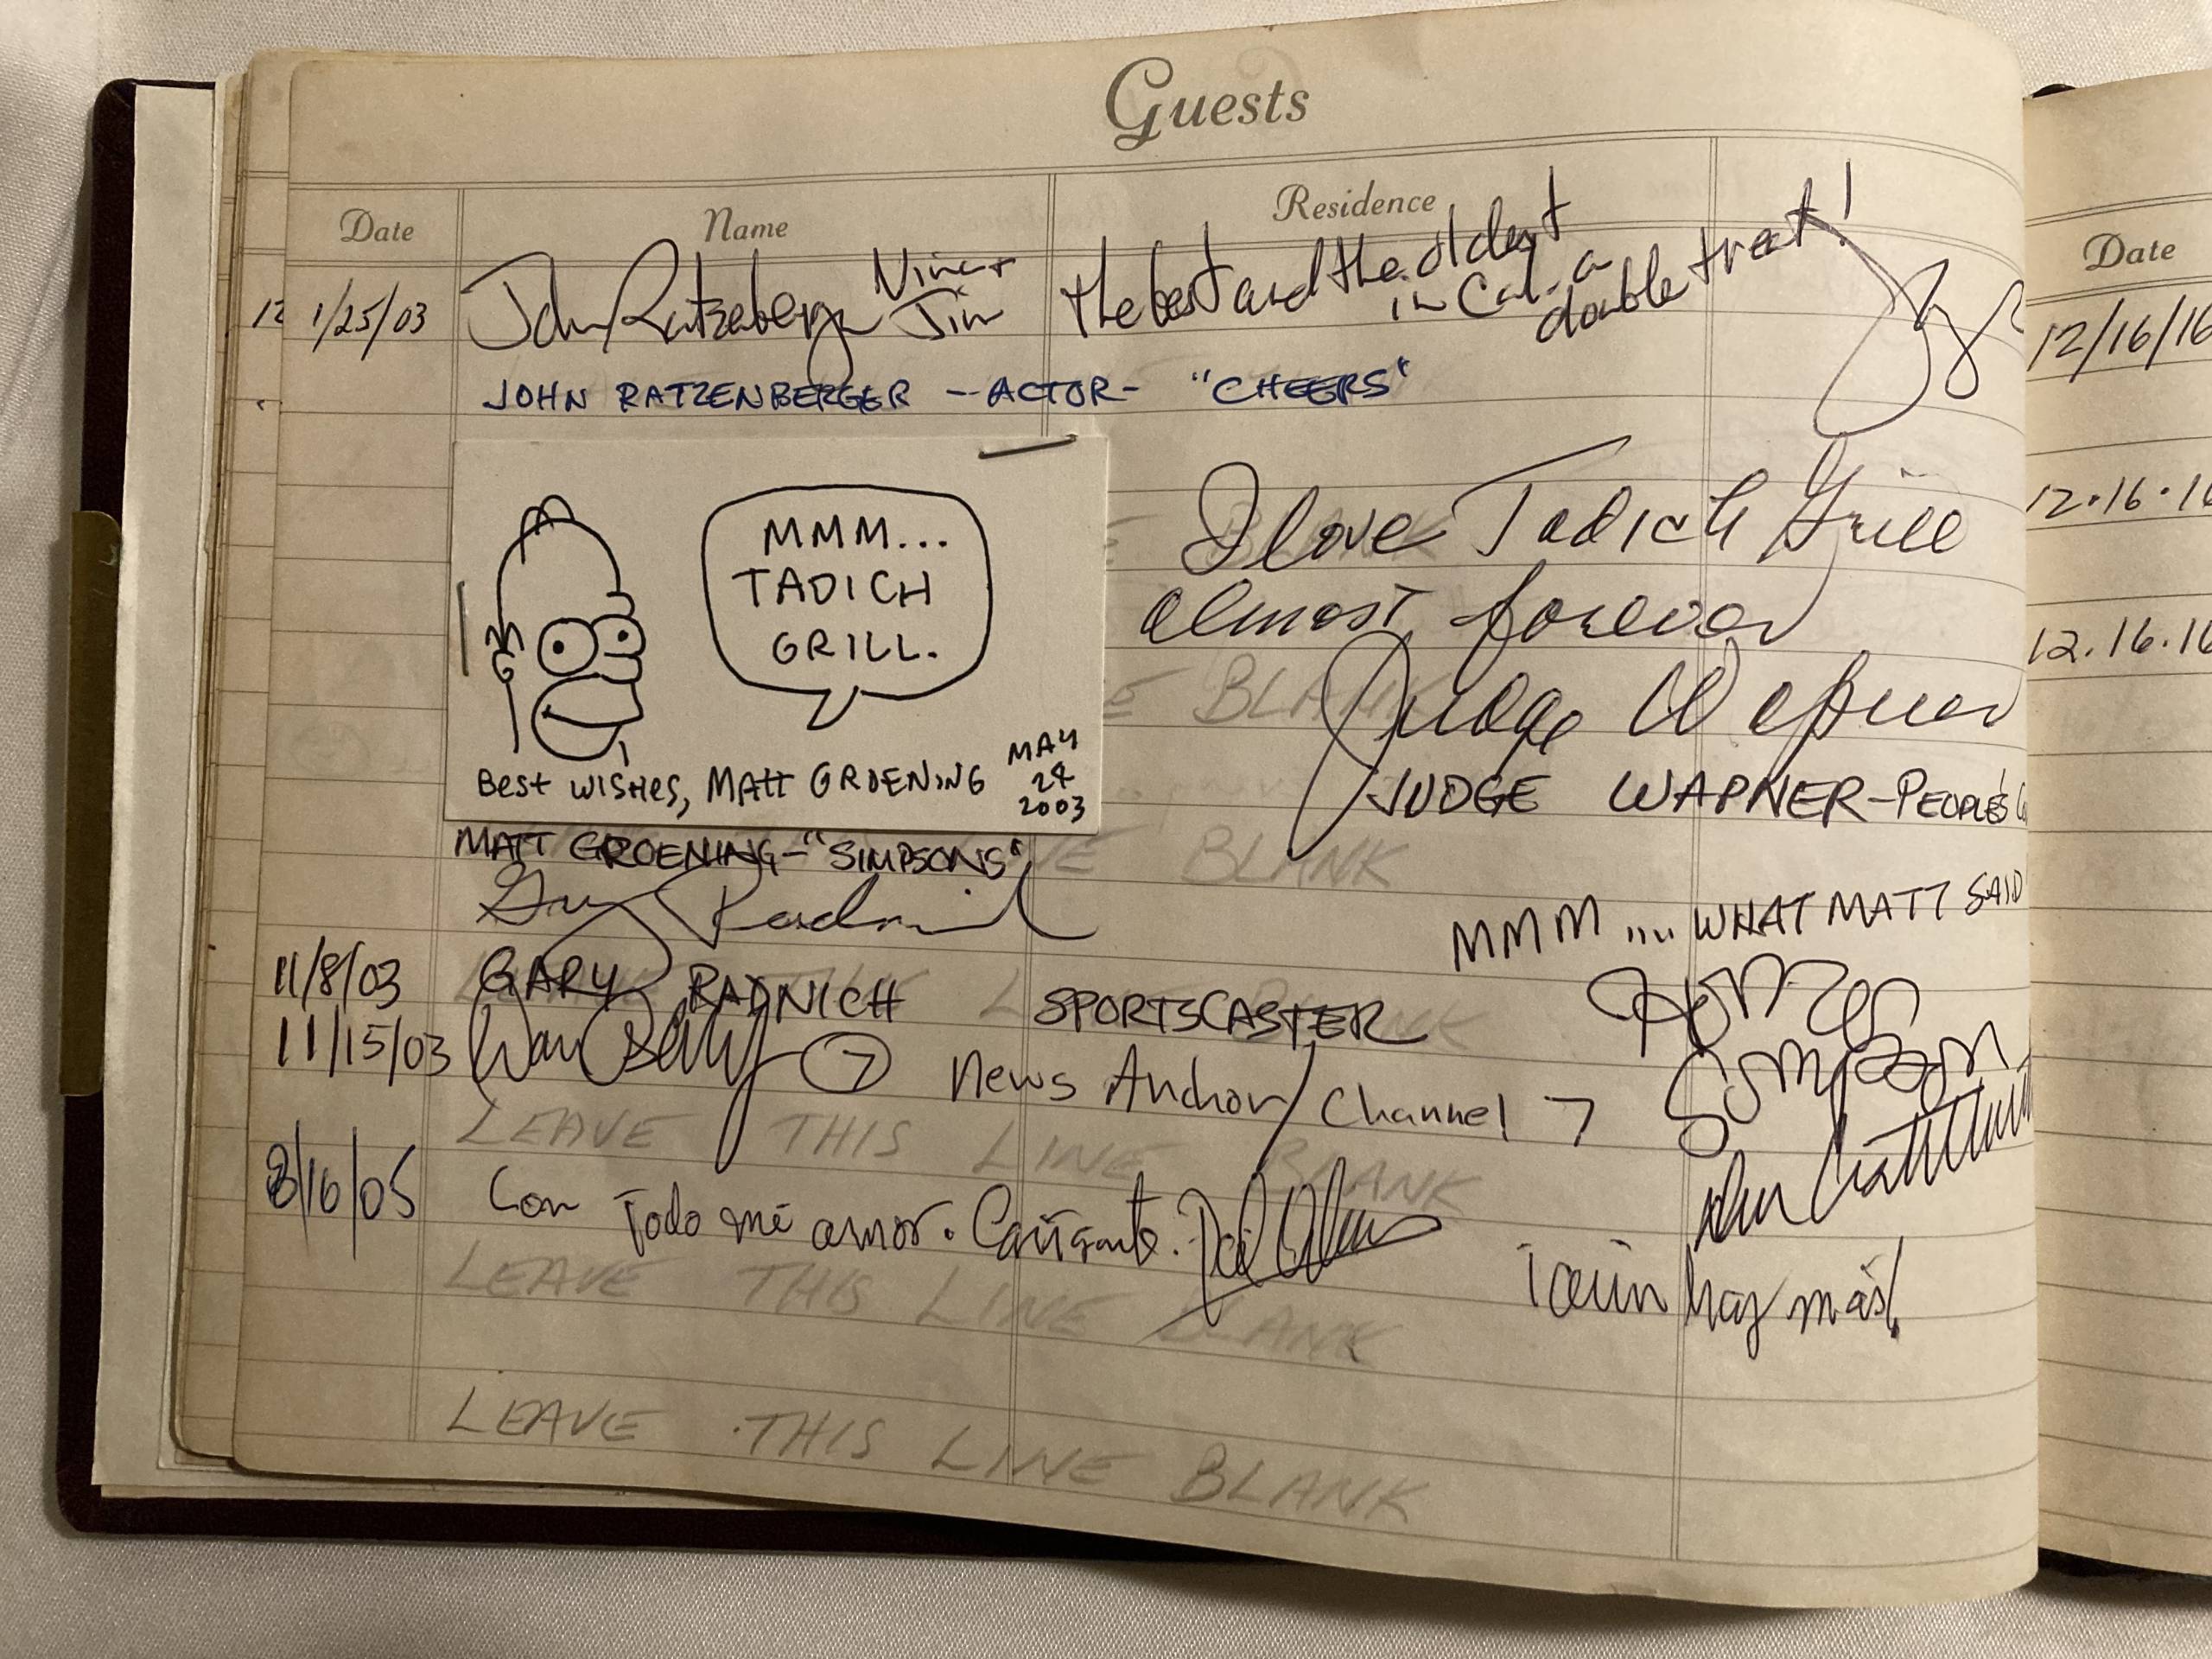 Guests
Date Name Residence
1/25/03 John Ratzenberger Nina + Jim The best and the oldest in Cal. a double treat!
JOHN RATZENBERGER -- ACTOR - "CHEERS"
MMM...
TADICH
GRILL.
Best wishes, MATT GROENING MAY 24 2003
MATT GROENING - "SIMPSONS"
I love Tadich Grill
almost forever
Judge Wapner
JUDGE WAPNER - PEOPLE'S
MMM .... WHAT MATT SAID
HOMER
SIMPSON
Gary Radnich
11/8/03 GARY RADNICH SPORTSCASTER
11/15/03 7 News Anchor / Channel 7
LEAVE THIS LINE BLANK
8/16/05 Con todo mi amor.
¡aún hay más!
LEAVE THIS LINE BLANK
LEAVE THIS LINE BLANK
Date
12/16/16
12.16.16
12.16.16